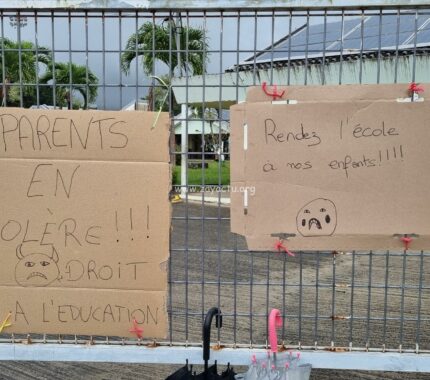 PARENTS
EN
COLÈRE !!!
DROIT
A L'EDUCATION
Rendez l'école
à nos enfants!!!!
www.zayactu.org